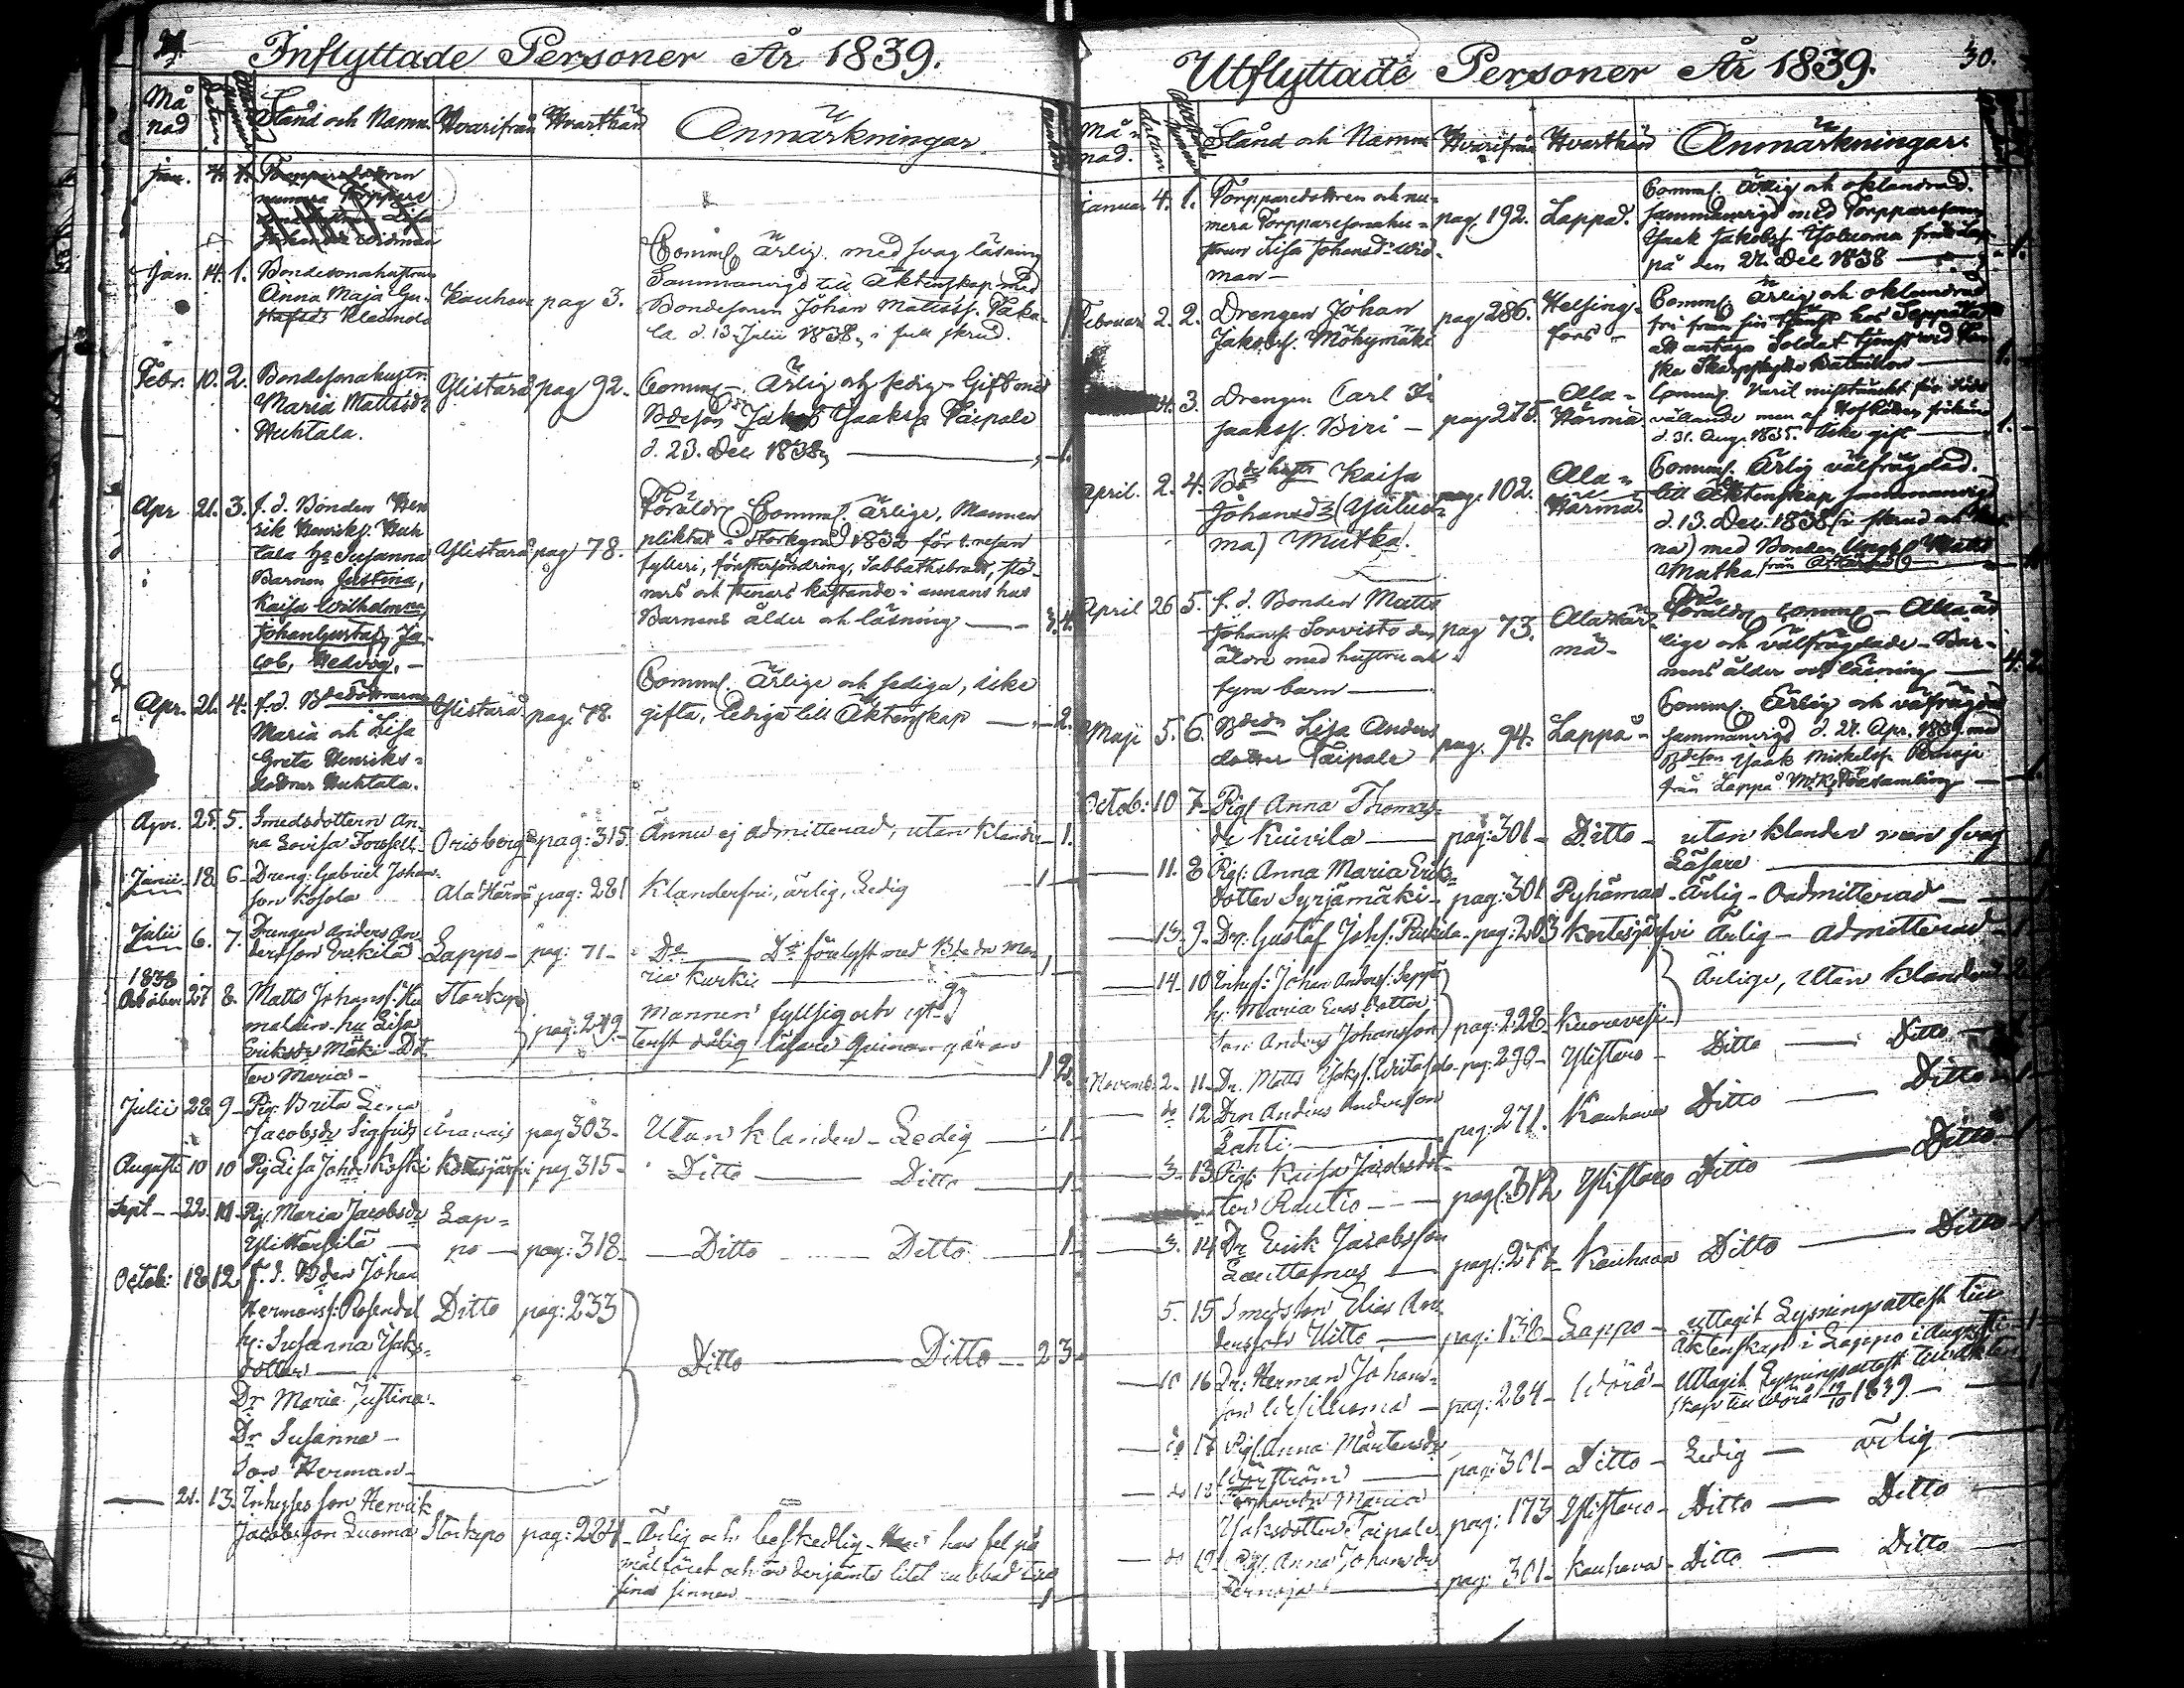 Inflyttade Personer År 1839.
Må nad
Stånd och Namn.
Hvarifrån
Hvarthän
Anmärkningar.
Jan. 4. 1. Torpparedottren
numera Torppare
Johansd: Widman
Jan. 14. 1. Bondesonahustrun
Anna Maja Gu-
stafsdr Kleemola
Kauhava pag 3.
Comms. Ärlig. med svag läsning
Sammanvigd till Äktenskap med
Bondesonen Johan Mattss.
d. 13 Julii 1838, i full skrud.
Febr. 10. 2. Bondesonahustr.
Maria Mattsdr
Huhtala.
Ylistaro pag 92.
Comms. Ärlig och sedig - Gift med
Bdeson Jakob Isaakss. Taipale
d. 23. Dec 1838,
Apr 21. 3. f. d. Bonden Hen
rik Henrikss. Huh
tala hu Susanna
Barnen Justina,
Kaisa Wilhelmina
Johan Gustaf, Ja-
cob, Hedvig. -
Ylistaro pag 78.
Föräldr Comms. Ärlige, Mannen
pliktat i Storkyro 1832 för 1. resan
fylleri, fönstersöndring, Sabbathsbrott, stö-
rars och stenars kastande i annans hus
Barnens ålder och läsning 3. 4.
Apr. 21. 4. f. d. Bdedöttrarna
Maria och Lisa
Greta Henriks-
döttrar Huhtala.
Ylistaro pag. 78.
Comms. Ärliga och sediga, icke
gifta, lediga till Äktenskap - 2.
Apr. 25. 5. Smedsdottern An-
na Lovisa Forssell
Orisberg pag: 315
Ännu ej admitterad, utan klander 1.
Junii 18 6 - Dreng: Gabriel Johans-
son Kosola
Ala Härmä pag: 281
Klanderfri, ärlig, Ledig 1
Julii 6. 7. Drengen Anders An
dersson Erkilä
Lappo - pag: 71 -
Do - Do förlyst med Bde dr Ma-
ria Kurki 1
1838
October 27 8. Matts Johanss. Hu
malainen hu Lisa
Eriksdr Mäki - Dot
ter Maria -
Storkyro
pag: 249 -
Mannen fyllsig och
dålig läsare Quinnan
1 2.
Julii 22 9 - Pig: Brita Lena
Jacobsdr Sigfrids
pag 303 -
Utan klander - Ledig 1
Augusti 10 10 Pig Lisa Johdr Koski
Kortesjärfvi pag 315 -
Ditto Ditto 1
Sept - 22. 11 - Pig. Maria Jacobsdr
Lap-
po - pag: 318 -
Ditto Ditto 1
Octob: 18 12 f. d. Bden Johan
Hermanss: Rosendal
hu: Susanna Isaks-
dotter
Dr Maria Justina:
Dr Susanna -
Son Herman -
Ditto pag: 233
Ditto Ditto 2 3
21. 13. Inhyses son Henrik
Jacobsson Luoma
Storkyro pag: 224
Ärlig och beskedlig - har fel på
målföret och är derjämte litet rubbad till
sina sinnen 1
Utflyttade Personer År 1839.
30.
Må-
nad.
datum
Stånd och Namn
Hvarifrån
Hvarthän
Anmärkningar.
Januar. 4. 1. Torpparedottren och nu-
mera Torpparesonahu-
strun Lisa Johansd: Wid-
man -
pag. 192. Lappo.
Comms. Ärlig och oklandrad.
sammanvigd med Torpparesonen
Isaak Jakobss. Yliluoma från Lap-
på den 27. Dec 1838 1.
Februari 2. 2. Drengen Johan
Jakobss. Möhymäki
pag 286. Helsing-
fors -
Comms. Ärlig och oklandrad
fri från sin tjenst hos Seppälä
att antaga Soldat tjenst vid Fin
ska Skarpskytte Bataillon 1.
4. 3. Drengen Carl I-
saakss. Biri -
pag 275. Alla-
Härmä.
Comms. Varit misstänkt för död
vållande men af Hofrätten frikänd
d. 31. Aug. 1835. Icke gift 1.
April. 2. 4. Bdehustr Kaisa
Johansdr (Ylilu-
ma) Mutka.
pag. 102. Alla-
Härmä.
Comms. Ärlig välfrägdad.
till Äktenskap sammanvigd
d. 13. Dec. 1838 (i skrud och
na) med Bonden Matts
Mutka från
April 26 5. f. d. Bonden Matts
Johanss. Sorvisto den
äldre med hustru och
fyra barn
pag 73. Alla Här-
mä -
Föräldr comms - Alla är
lige och välfrägdade - Bar-
nens ålder och läsning 4. 2.
Maji 5. 6. Bdedr Lisa Anders
dotter Taipale
pag. 94. Lappo -
Comms. Ärlig och välfrägdad
sammanvigd d. 27. Apr. 1839 med
Bdeson Isaak Mickelss. Pernaja
från Lappå Församling 1.
Octob: 10 7 - Pigl Anna Thomas-
dr Kiuvila pag: 301 - Ditto -
utan klander men svag
Läsare
11. 8 Pig: Anna Maria Eriks-
dotter Syrjämäki - pag: 301 Pyhämaa - Ärlig - Oadmitterad
13 - 9 - Dr: Gustaf Johs. - pag: 203 Kortesjärfvi Ärlig - admitterad - 1
14 - 10 Inhys: Johan Anders. Seppä
hu: Maria Ersdotter
Son Anders Johansson
pag: 228 Kuorevesi -
Ärlige, utan klander
Novemb: 2 - 11 - Dr. Matts Isakss. - pag: 290 - Ylistaro - Ditto Ditto
do 12 Drn Anders Andersson
Lahti pag: 271. Kauhava Ditto Ditto 1
3 - 13 Pigl: Kaisa Jacobsdot-
ter Rautio pagl: 312 Ylistaro Ditto Ditto 1
3. 14 Dr Erik Jacobsson
pagl: 277 - Kauhava Ditto Ditto 1
5. 15 Smedsson Elias An-
dersson Uitto pag: 138 - Lappo -
uttagit Lysningsattest till
Äktenskap i Lappo i Augusti 1
10 16 Dr: Herman Johans-
son pag: 284 - Wörå -
Uttagit Lysningsattest till Äkten
skap till Wörå 19/10 1839 1
do 17 Pigl. Anna Mårtensdr
pag: 301 - Ditto - Ledig - ärlig
do 18 Maria
Isaksdotter Taipale pag: 173 Ylistaro - Ditto Ditto
do 19 - Pigl. Anna Johansdr
Pernaja pag: 301 - Kauhava - Ditto Ditto